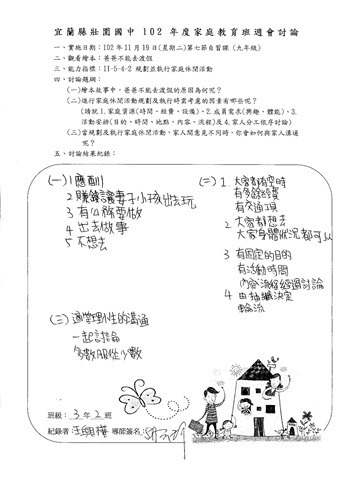 宜蘭縣壯圍國中 102 年度家庭教育班週會討論
一、實施日期：102年11月19日(星期二)第七節自習課（九年級）
二、觀看繪本：爸爸不能去渡假
三、能力指標：11-5-4-2 規劃並執行家庭休閒活動
四、討論題綱：
(一)繪本故事中，爸爸不能去渡假的原因為何呢？
(二)進行家庭休閒活動規劃及執行時需考慮的因素有哪些呢？
(請就 1.家庭資源(時間、經費、設備)、2.成員需求(興趣、體能)、3.
活動安排(目的、時間、地點、內容、流程)及 4.家人分工依序討論)
(三)當規劃及執行家庭休閒活動，家人間意見不同時，你會如何與家人溝通
呢？
五、討論結果紀錄：
(一)1 應酬
2 賺錢讓妻子小孩出去玩
3 有公務要做
4 出去做事
5 不想去
(二)1 大家都有空時
有多餘經費
有交通
2 大家都想去
大家身體狀況都可以
3 有固定的目的
有活動時間
內容流程經過討論
4 由抽籤決定
輪流
(三)適當理性的溝通
一起討論
多數服從少數
班級：3年2班
紀錄者：王 導師簽名：